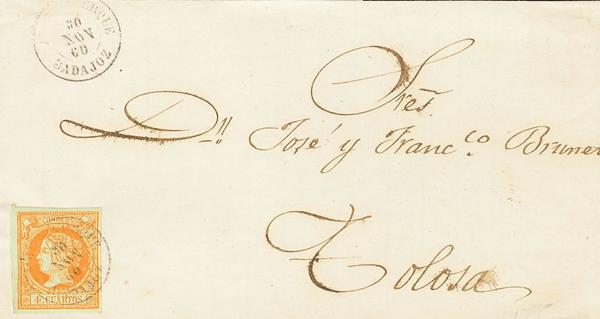 30
NOV
60
BADAJOZ
Sres.
Dn. José y Franc.co Bruner
Tolosa
CORREOS
4 CUARTOS